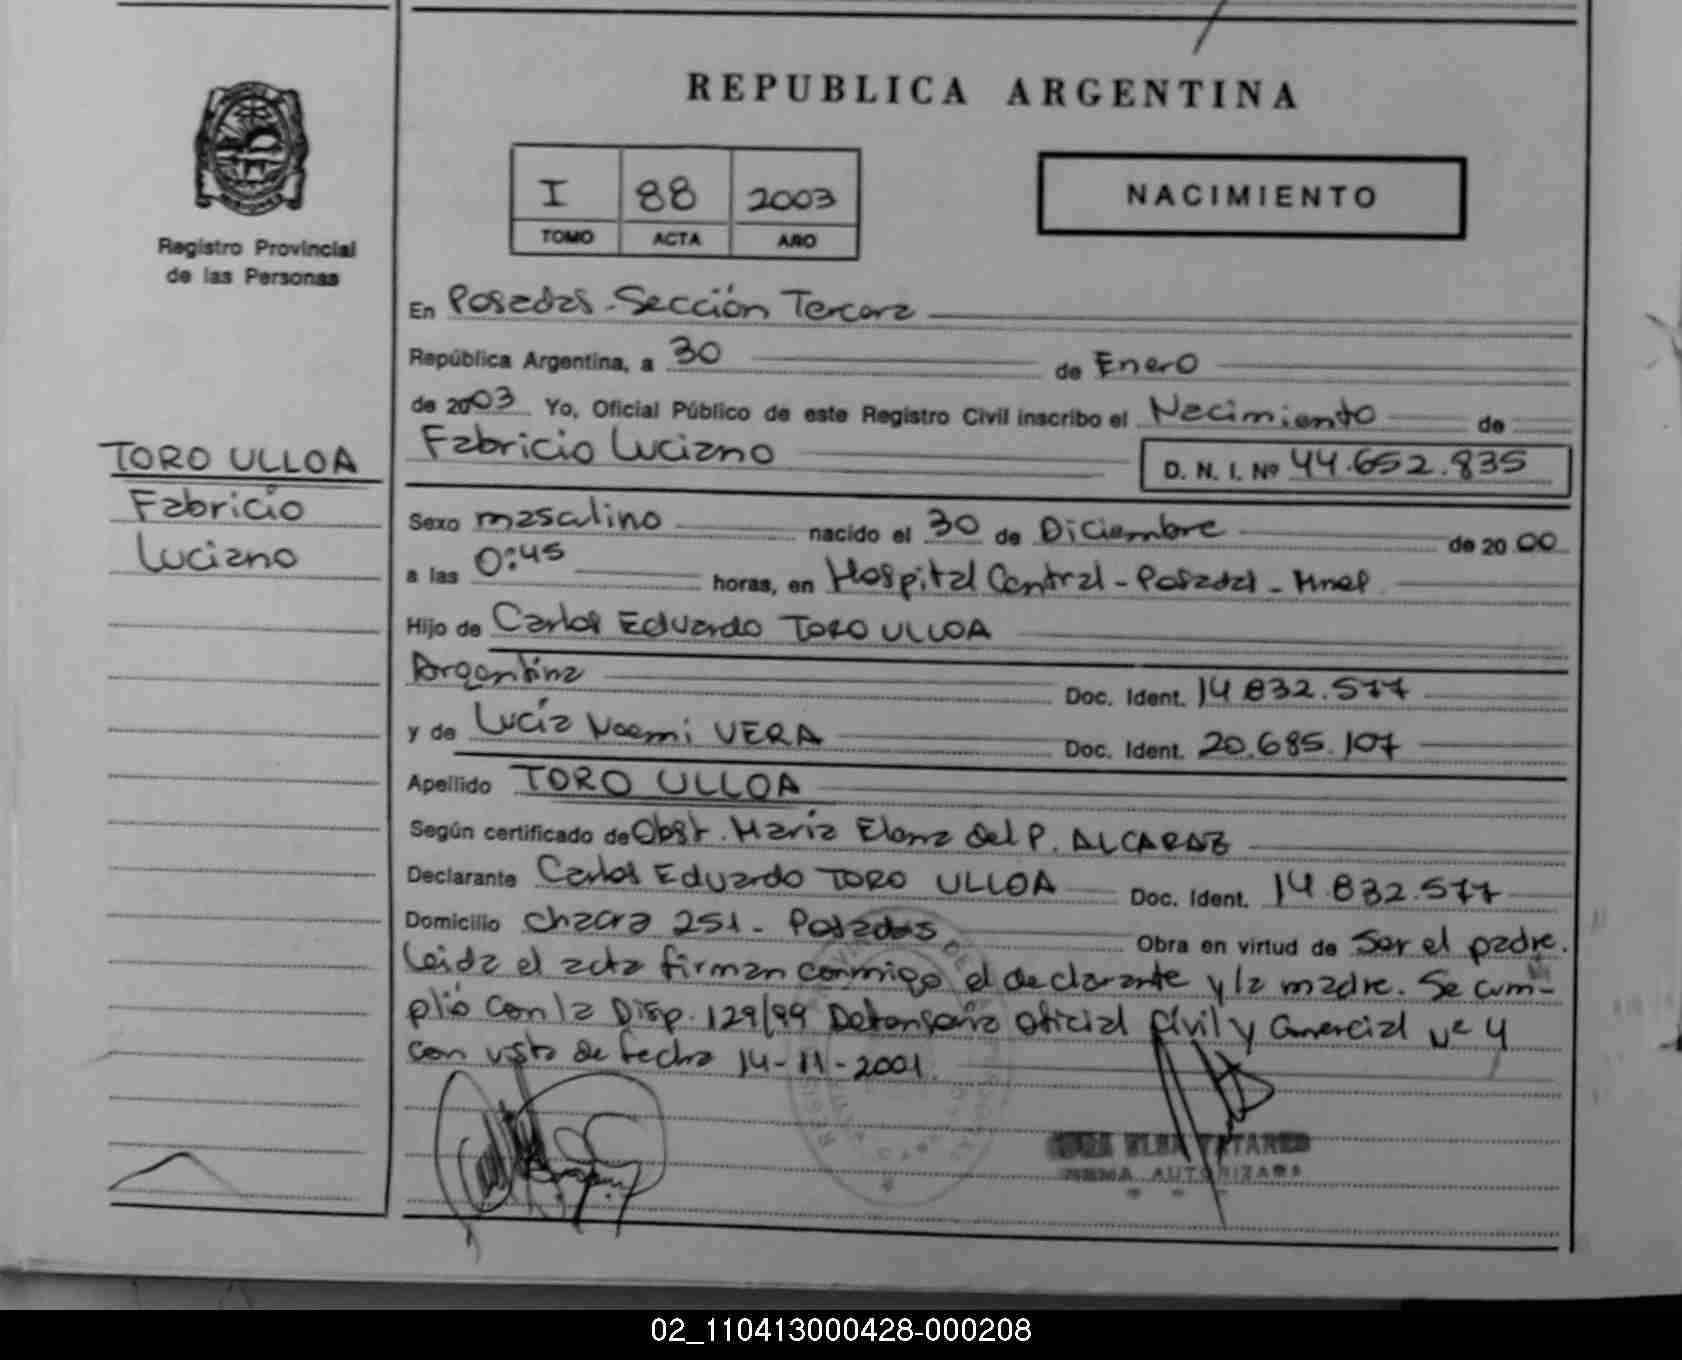 REPUBLICA ARGENTINA
I 88 2003
TOMO ACTA AÑO
NACIMIENTO
Registro Provincial
de las Personas
TORO ULLOA
Fabricio
Luciano
En Posadas - Sección Tercera
República Argentina, a 30 de Enero
de 2003 Yo, Oficial Público de este Registro Civil inscribo el Nacimiento de
Fabricio Luciano D. N. I. Nº 44.652.835
Sexo masculino nacido el 30 de Diciembre de 2000
a las 0:45 horas, en Hospital Central - Posadas - Mnes
Hijo de Carlos Eduardo TORO ULLOA
Argentina Doc. Ident. 14.832.577
y de Lucía Noemi VERA Doc. Ident. 20.685.107
Apellido TORO ULLOA
Según certificado de Obst. María Elena del P. ALCARAZ
Declarante Carlos Eduardo TORO ULLOA Doc. Ident. 14.832.577
Domicilio Chacra 251 - Posadas Obra en virtud de Ser el padre.
Leida el acta firman conmigo el declarante y la madre. Se cum-
plió con la Disp. 129/99 Defensoría Oficial Civil y Comercial Nº 4
con vista de fecha 14-11-2001.
ELBA
FIRMA AUTORIZADA
02_110413000428-000208